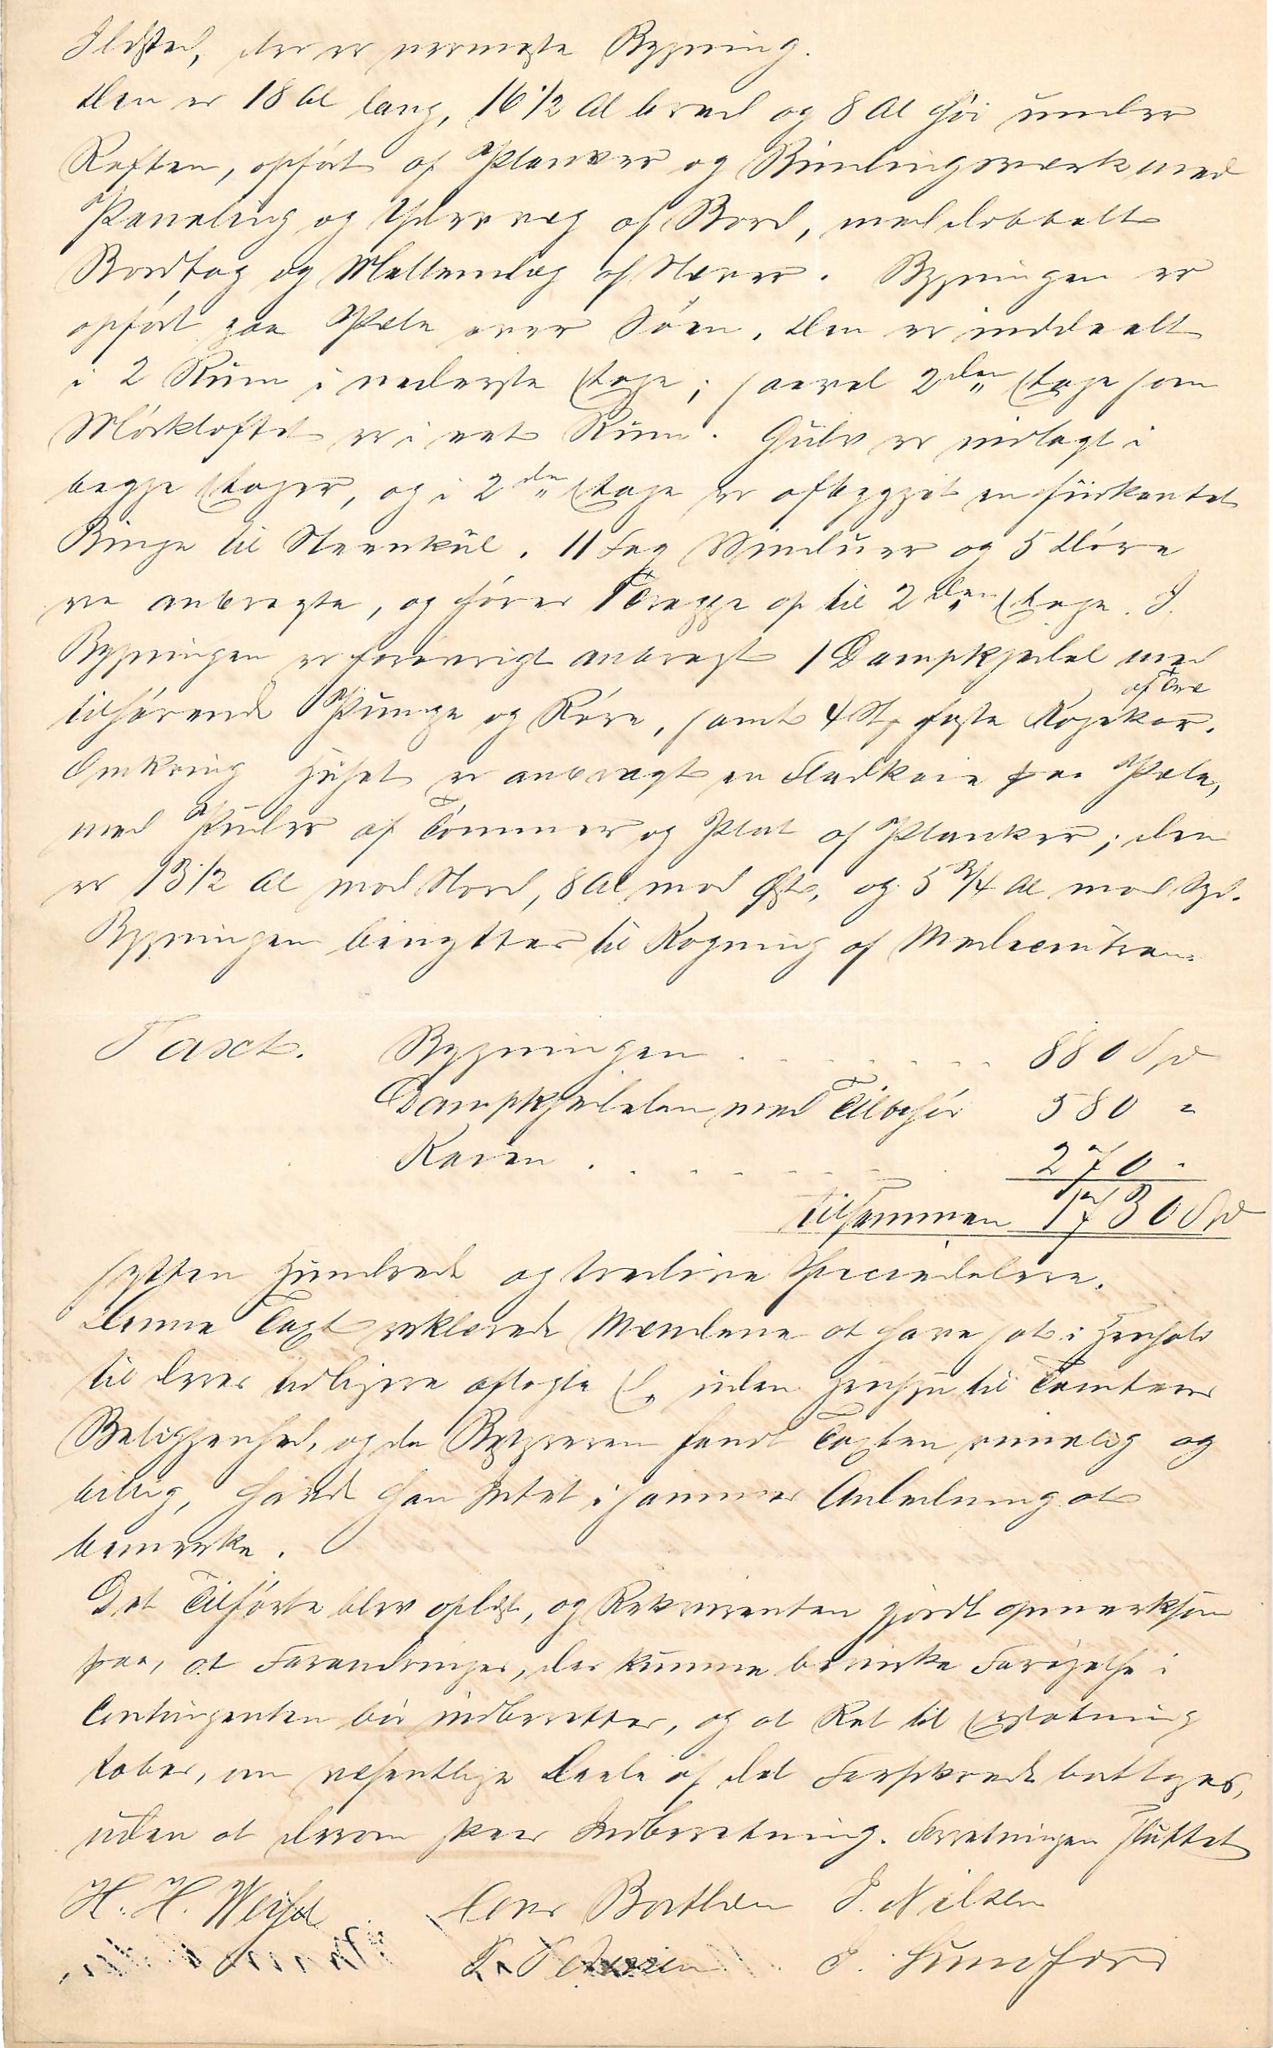 Ildsted, der er nermeste Bygning.
Den er 18 Al lang, 16 1/2 Al bred og 8 Al høi under
Raften, opført af Planker og Bindingsværk med
Paneling og Ydervæg af Bord, med dobbelt
Bordtag og Mellemlag af Næver. Bygningen er
opført paa Pæle over Søen. Den er inddeelt
i 2 Rum i nederste Etage; saavel 2den Etage som
Mørkloftet er i eet Rum. Gulv er indlagt i
begge Etager, og i 2den Etage er afbygget en fiirkantet
Binge til Steenkul. 11 Fag Vinduer og 5 Døre
ere anbragte, og fører Trappe op til 2den Etage. I
Bygningen er forøvrigt anbragt 1 Dampkjedel med
tilhørende Pumpe og Røre, samt 4 St faste Kogekar.
af Træ
Omkring Huset er anbragt en Fladkaie paa Pæle,
med Puder af Tømmer og Plat af Planker; den
er 13 1/2 Al mod Nord, 8 Al mod Øst, og 5 3/4 Al mod Syd.
Bygningen benyttes til Kogning af Medecintran.
Taxt. Bygningen . . . . . . . . 880 Spd
Dampkjedelen med Tilbehør 580 "
Kaien . . . . . . . 270 "
Tilsammen 1730 Spd
sytten Hundrede og tredive Speciedalere.
Denne Taxt erklærede Mændene at have sat i Henhold
til deres tidligere aflagte Ed, uden Hensyn til Tomtens
Beliggenhed, og da Bestyreren fandt Taxten rimelig og
billig, havde han Intet i saa Anledning at
bemærke.
Det Tilførte blev oplæst, og Rekvirenten gjordt opmærksom
paa, at Forandringer, der kunne bevirke Forøgelse i
Contingenten bør indberettes, og at Ret til Erstatning
tabes, om væsentlige Deele af det Forsikrede borttages,
uden at derom skeer Indberetning. Forretningen sluttet
H. H. Weise Bertheu J. Nilsen
P. Pedersen J. Sundfær